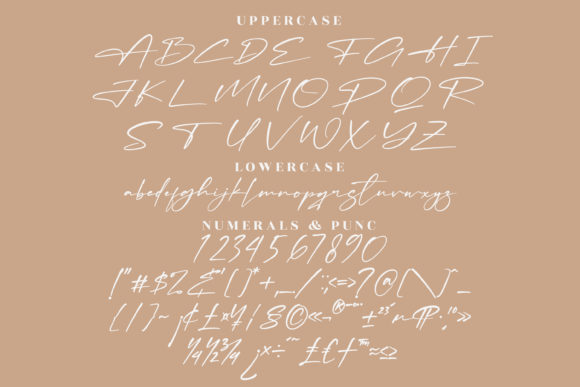 UPPERCASE
A B C D E F G H I
J K L M N O P Q R
S T U V W X Y Z
LOWERCASE
abcdefghijklmnopqrstuvwxyz
NUMERALS & PUNC
1234567890
!"#$%&'()*+,-./:;<=>?@[\]^_
{|}~¡¢£¤¥¦§©«¬®¯°±²³´µ¶·¹º»
¼½¾¿×÷